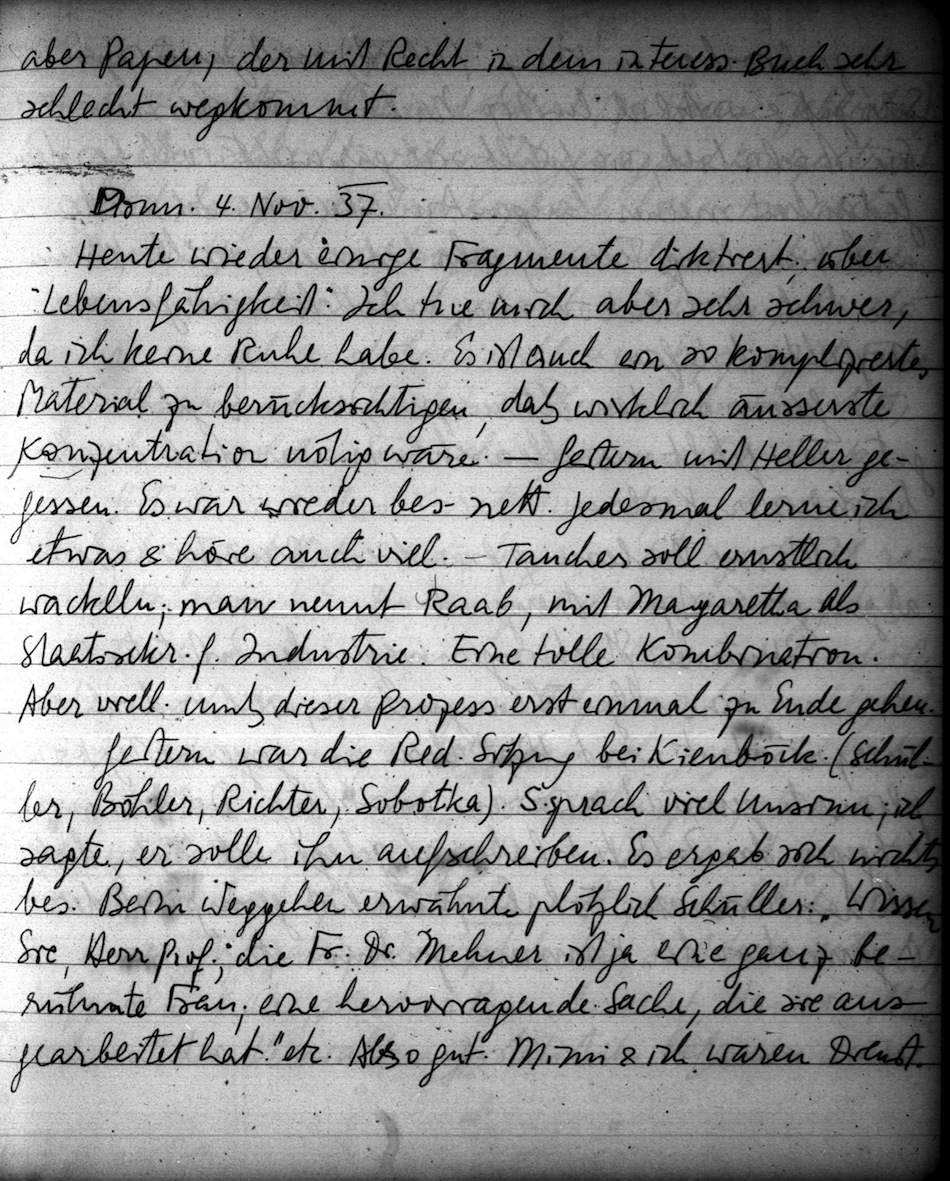 aber Papen, der mit Recht in dem interess. Buch sehr
schlecht wegkommt.
Donn. 4. Nov. 37.
Heute wieder einige Fragmente diktiert, über
"Lebensfähigkeit". Ich tue mich aber sehr schwer,
da ich keine Ruhe habe. Es ist auch ein so kompliziertes
Material zu berücksichtigen, daß wirklich äusserste
Konzentration nötig wäre. — Gestern mit Heller ge-
gessen. Es war wieder bes. nett. Jedesmal lerne ich
etwas & höre auch viel. – Taucher soll ernstlich
wackeln; man nennt Raab, mit Margaretha als
Staatssekr. f. Industrie. Eine tolle Kombination.
Aber viell. muß dieser Prozess erst einmal zu Ende gehen.
Gestern war die Red. Sitzung bei Kienböck. (Schül-
ler, Böhler, Richter, Sobotka). S. sprach viel Unsinn; ich
sagte, er solle ihn aufschreiben. Es ergab sich nichts
bes. Beim Weggehen erwähnte plötzlich Schüller: „Wissen
Sie, Herr Prof.; die Fr. Dr. Mehner ist ja eine ganz be-
rühmte Frau; eine hervorragende Sache, die sie aus-
gearbeitet hat." etc. Also gut. Mimi & ich waren Dienst.